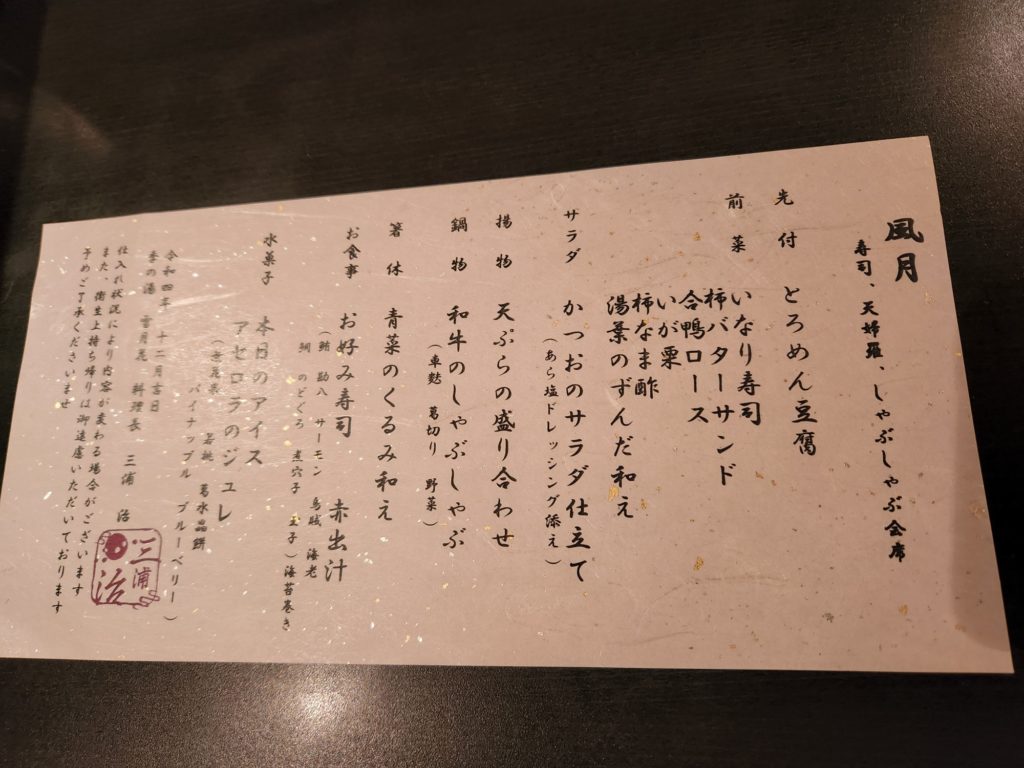 風月
寿司、天婦羅、しゃぶしゃぶ会席
先付 とろめん豆腐
前菜 いなり寿司
柿バターサンド
合鴨ロース
いが栗
柿なま酢
湯葉のずんだ和え
サラダ かつおのサラダ仕立て
(あら塩ドレッシング添え)
揚物 天ぷらの盛り合わせ
鍋物 和牛のしゃぶしゃぶ
(車麩 葛切り 野菜)
箸休 青菜のくるみ和え
お食事 お好み寿司 赤出汁
(鮪 勘八 サーモン 烏賊 海老
鯛 のどくろ 煮穴子 玉子)海苔巻き
水菓子 本日のアイス
アセロラのジュレ
若桃 葛水晶餅
パイナップル ブルーベリー)
令和四年 十二月吉日
季の湯 雪月花 料理長 三浦 治
仕入れ状況により内容が変わる場合がございます
また、衛生上持ち帰りは御遠慮いただいております
予めご了承くださいませ
三浦
治